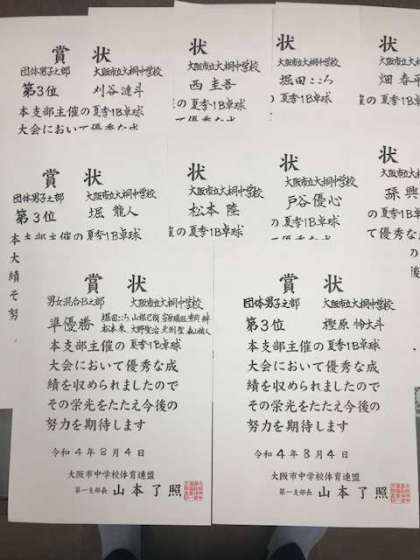 賞 状
団体男子之部 大阪市立大桐中学校
第3位 刈谷 漣斗
本支部主催の夏季1B卓球
大会において優秀な成
状
大阪市立大桐中学校
西 圭吾
の夏季1B卓球
状
大阪市立大桐中学校
堀田 こころ
の夏季1B卓球
状
大阪市立大桐中学校
畑 春
の夏季1B卓球
賞 状
団体男子之部 大阪市立大桐中学校
第3位 堀 龍人
本支部主催の夏季1B卓球
状
大阪市立大桐中学校
松本 陸
の夏季1B卓球
状
大阪市立大桐中学校
戸谷 優心
の夏季1B卓球
状
大阪市立大桐中学校
孫 興
の夏季1B卓球
大
績
そ
努
賞 状
男女混合B之部 大阪市立大桐中学校
準優勝 堀田こころ
本支部主催の夏季1B卓球
大会において優秀な成
績を収められましたので
その栄光をたたえ今後の
努力を期待します
令和4年8月4日
大阪市中学校体育連盟
第一支部長 山本了照
賞 状
団体男子之部 大阪市立大桐中学校
第3位 樫原 怜大斗
本支部主催の夏季1B卓球
大会において優秀な成
績を収められましたので
その栄光をたたえ今後の
努力を期待します
令和4年8月4日
大阪市中学校体育連盟
第一支部長 山本了照